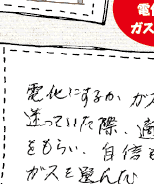 電化
ガス
電化にするか ガス
迷っていた際、適
をもらい、自信を
ガスを選んだ